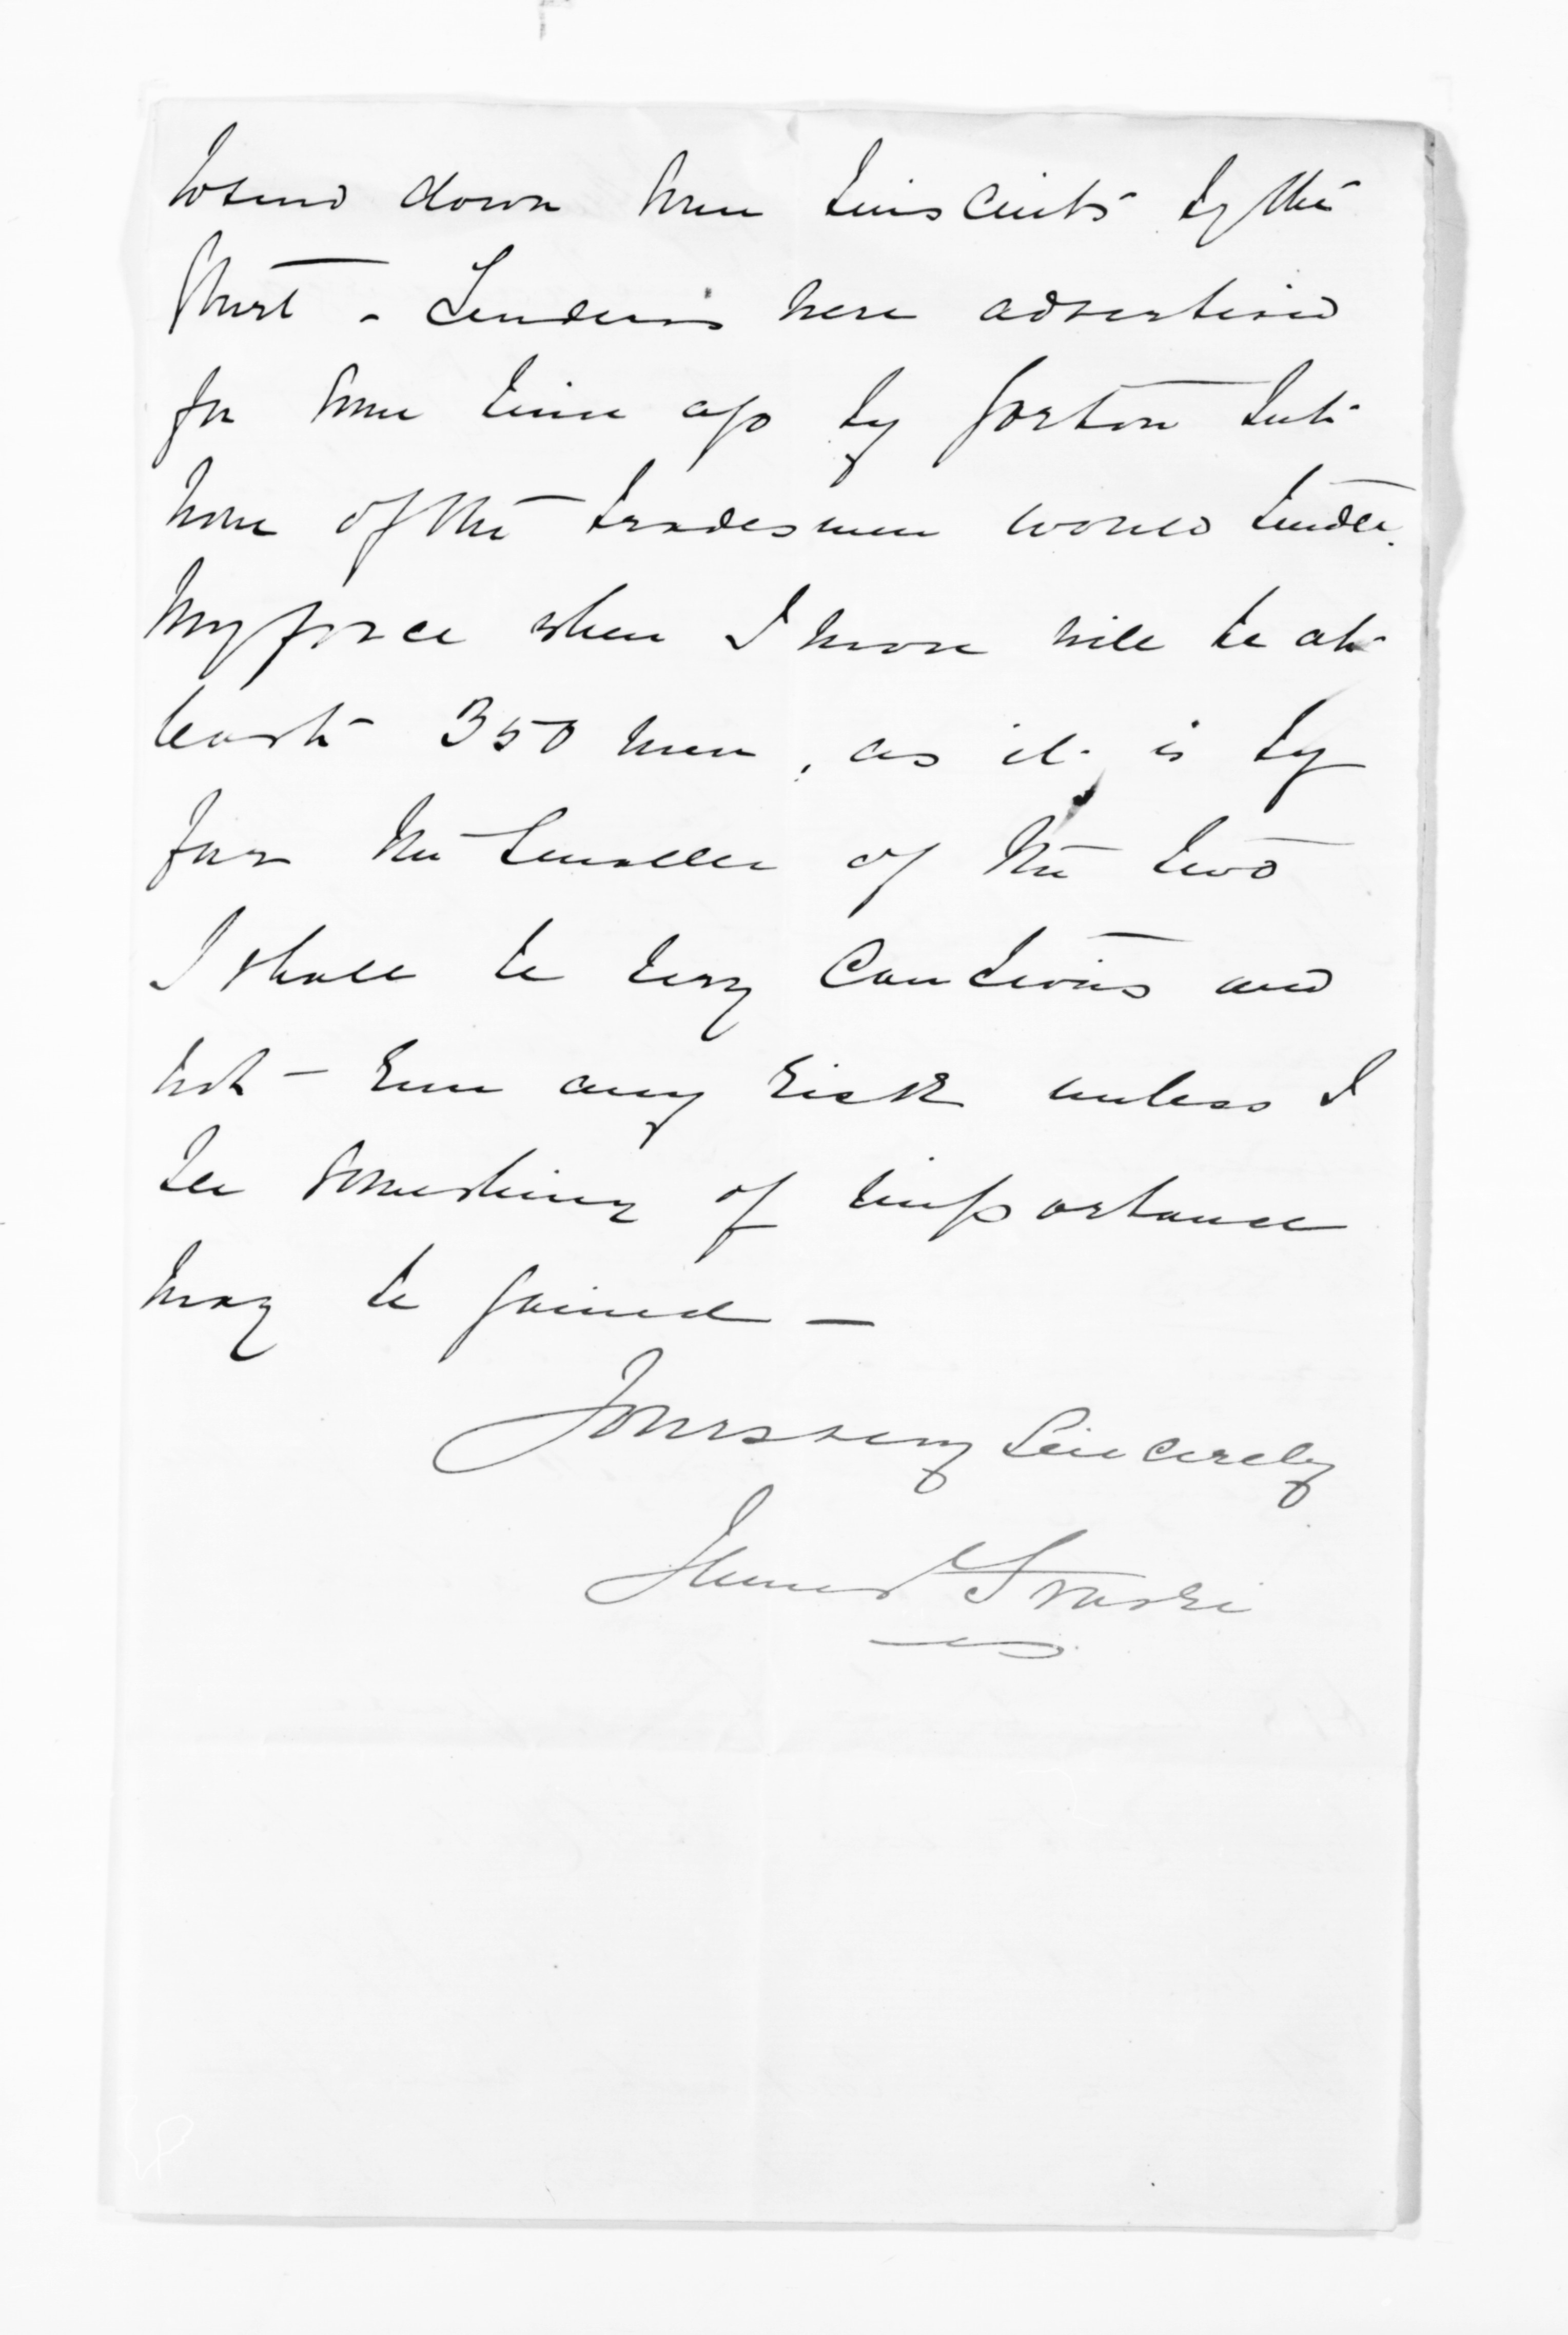 to send down some biscuits by the
Sturt - Tenders were advertised
for some time ago by Gorton but
none of the tradesmen would tender.
My force when I move will be at
least 350 men, as it is by
far the smaller of the two
I shall be very cautious and
not - run any risk unless I
see something of importance
may be gained -
Yours very Sincerely
James Fraser